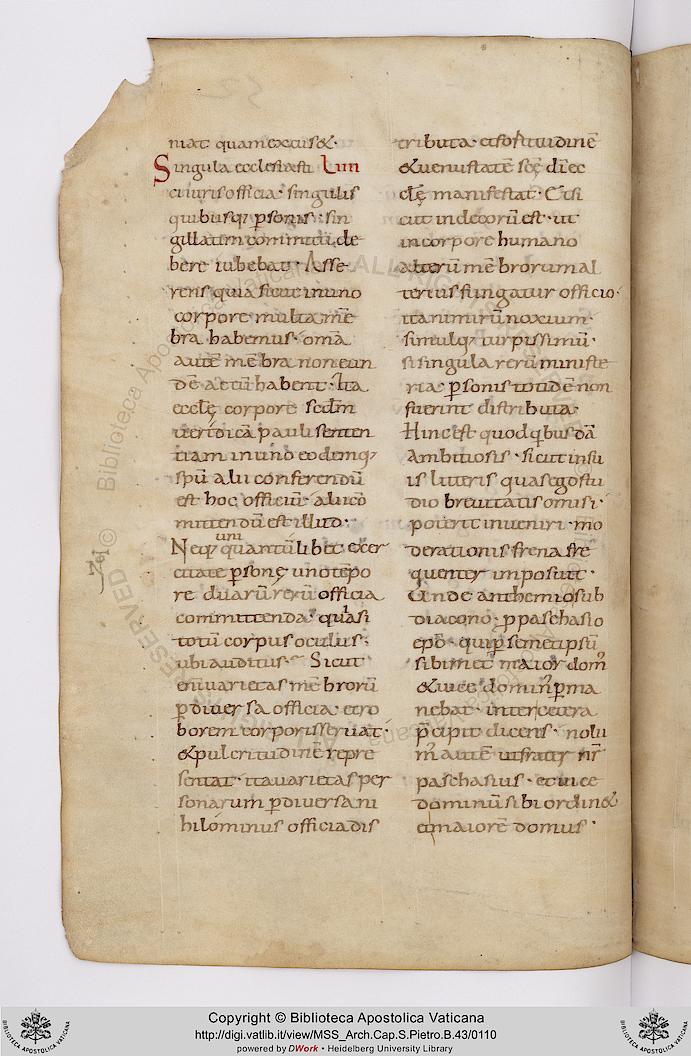 niat quam excusc&·
Singula ecclesiasti Lun
ci iuris officia· singulis
quibusq; psonis· sin
gillatim committi de
bere iubebat· Asse
rens quia sicut in uno
corpore multa mē
bra habemus· omā
autē mēbra non eun
dē actū habent· Ita
eccłę corpore scdm̄
veridicā pauli senten
tiam in uno eodemq;
spū alii conferendū
est hoc officiū· alii cō
mittendū est illud·
Neq; uni quantūlibet exer
citatę psonę uno tēpo
re duarū rerū officia
committenda· quasi
totū corpus oculus;
ubi auditus· Sicut
enī varietas mēbrorū
p diversa officia· et ro
bor em corporis servat·
& pulcritudinē repre
sentat· ita varietas per
sonarum p diversa ni
hilominus officia dis
tributa· et fortitudinē
& venustatē scę di ec
clę manifestat· Et si
cut indecorū est· ut
in corpore humano
alterū mēbrorum al
terius fungatur officio·
ita nimirū noxium·
simulq; turpissimū·
si singula rerū ministe
ria· psonis totidē non
fuerint distributa·
Hinc est quod qbusdā
Ambitiosis· sicut in su
is litteris quas ego stu
dio brevitatis omisi·
poterit inveniri· mo
derationis frena fre
quenter imposuit·
Unde anthemio sub
diacono· p paschasio
epō· qui p semetipsū
sibimet maior dom̄
& vice dominꝰ pma
nebat· inter cetera
p̄cipit dicens· nolu
m̄ autē ut frater nr̄
paschasius· et vice
dominū sibi ordin&
et maiorē domus·
Copyright © Biblioteca Apostolica Vaticana
http://digi.vatlib.it/view/MSS_Arch.Cap.S.Pietro.B.43/0110
powered by DWork · Heidelberg University Library